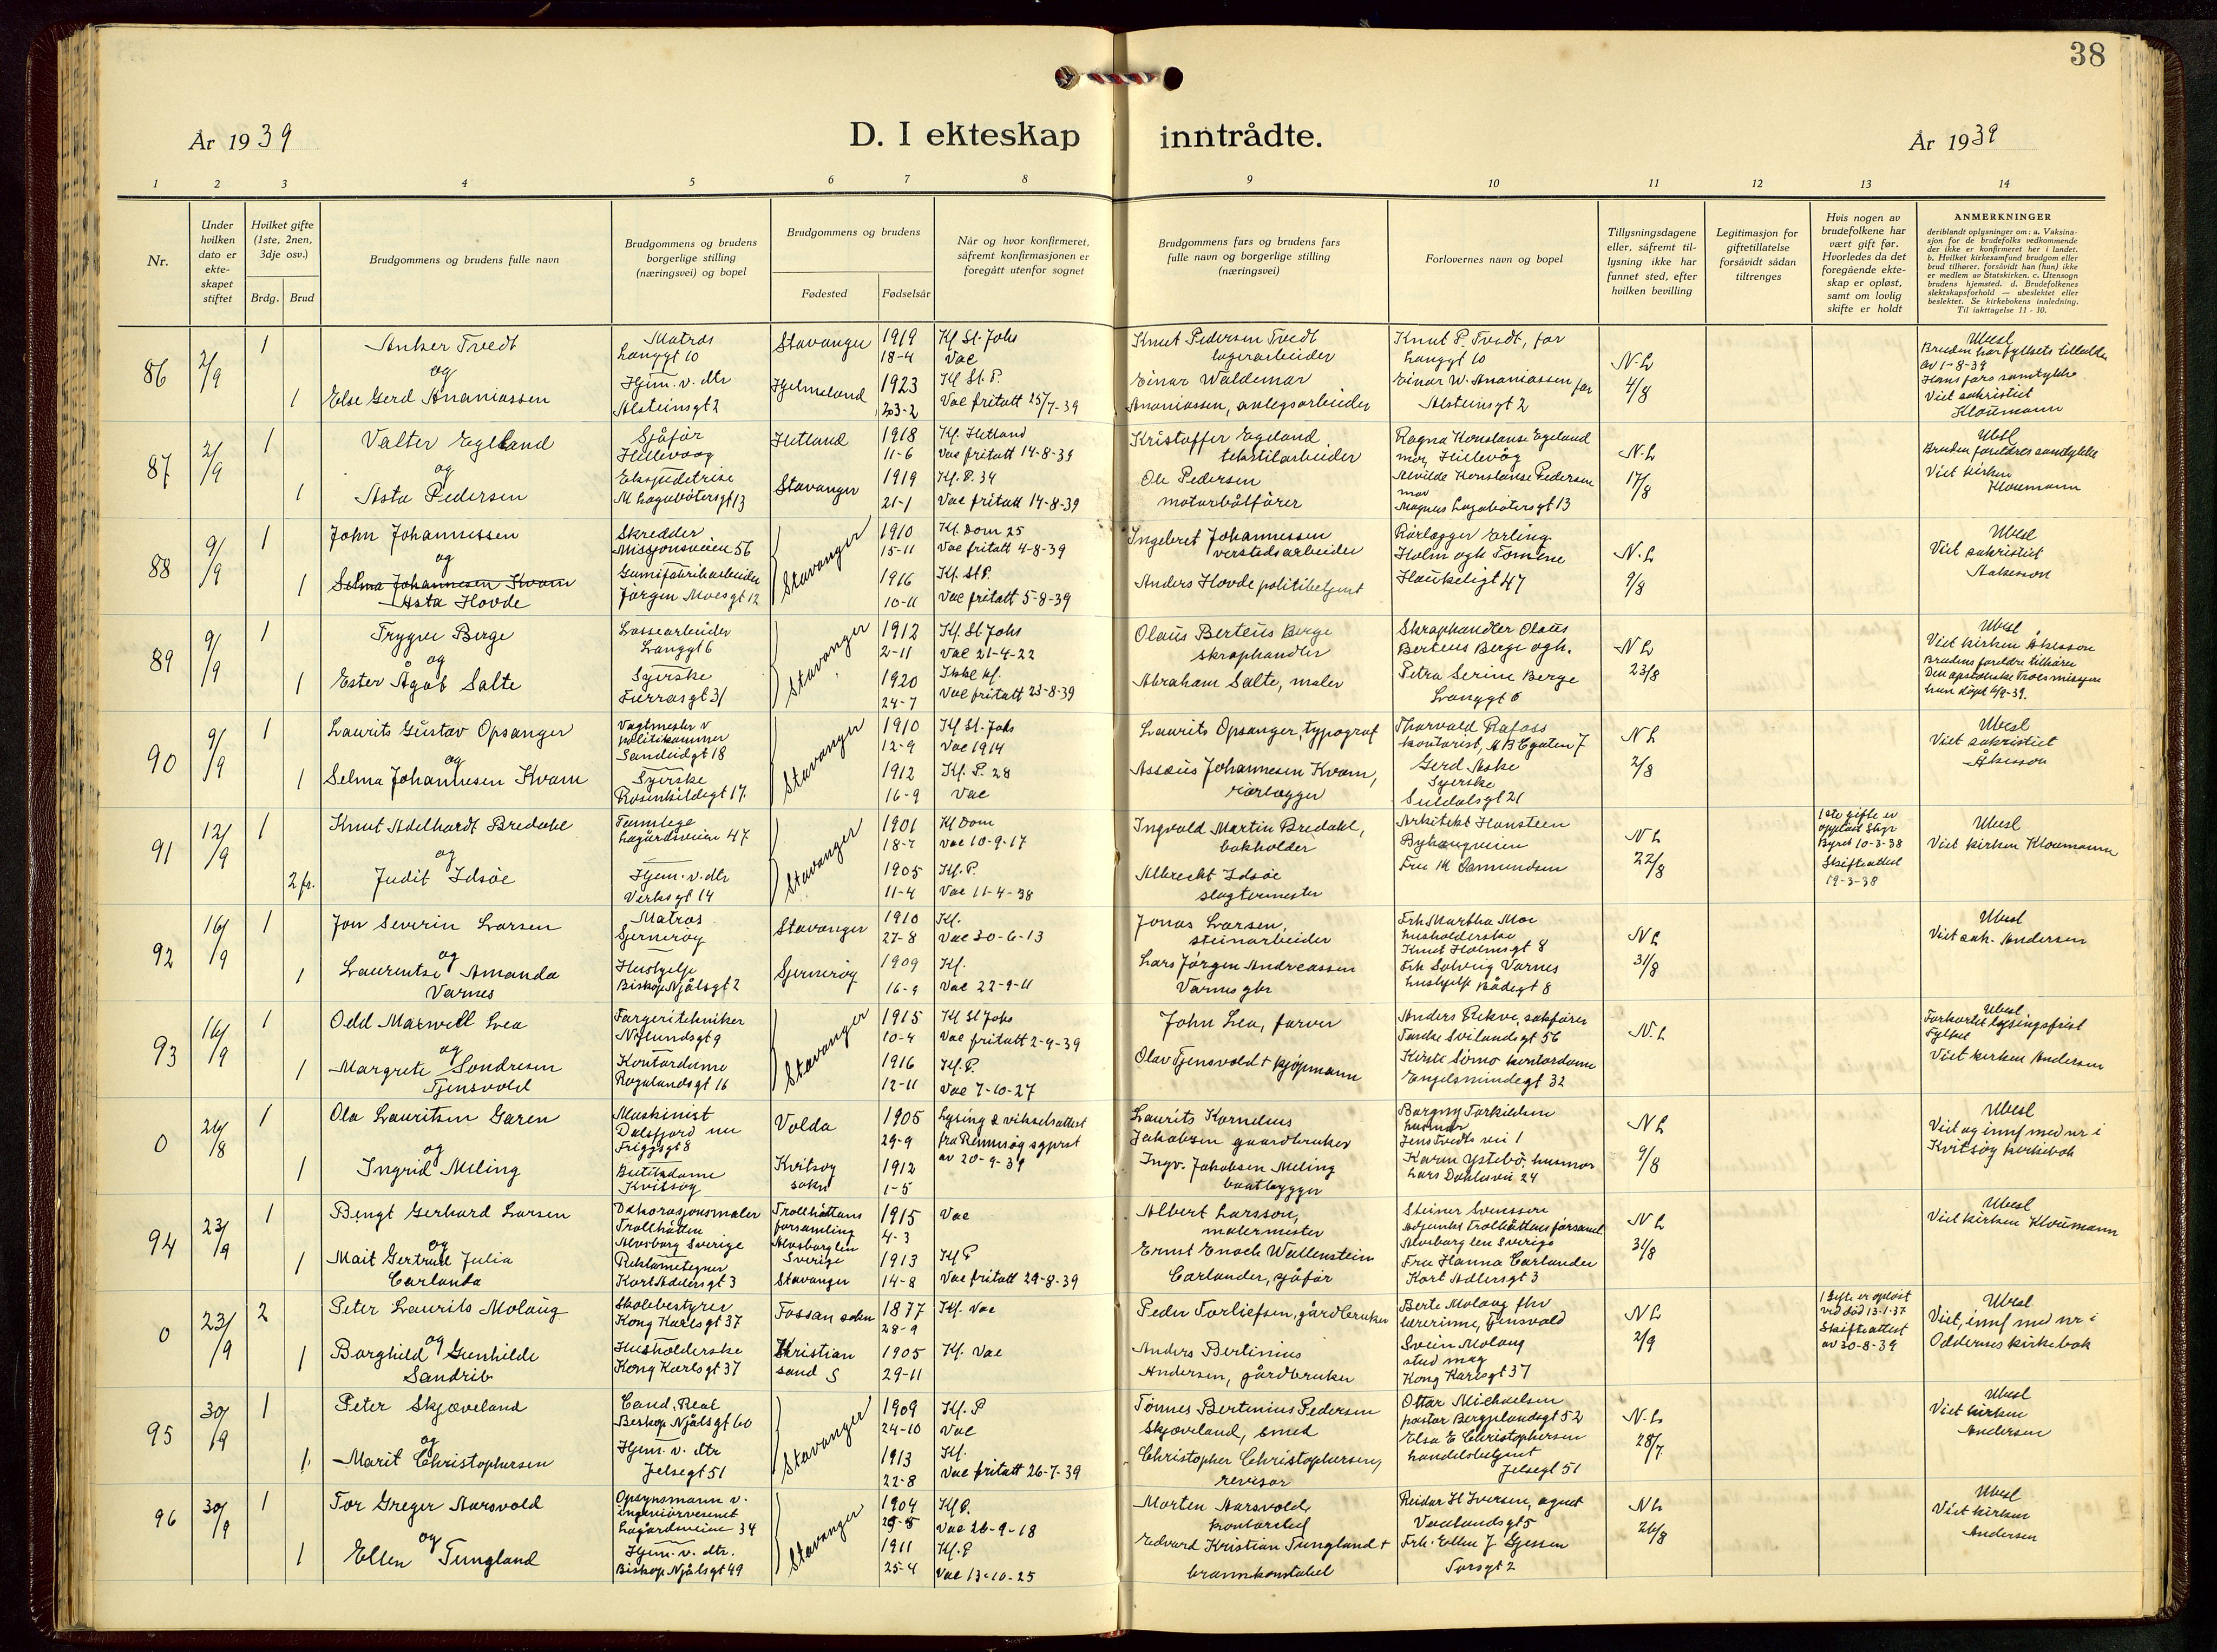 38
År 1939
D. I ekteskap inntrådte.
År 1939
1 2 3 4 5 6 7 8 9 10 11 12 13 14
Nr.
Under hvilken dato er ekteskapet stiftet
Hvilket gifte (1ste, 2nen, 3dje osv.)
Brdg. Brud
Brudgommens og brudens fulle navn
Brudgommens og brudens borgerlige stilling (næringsvei) og bopel
Brudgommens og brudens
Fødested
Fødselsår
Når og hvor konfirmeret, såfremt konfirmasjonen er foregått utenfor sognet
Brudgommens fars og brudens fars fulle navn og borgerlige stilling (næringsvei)
Forlovernes navn og bopel
Tillysningsdagene eller, såfremt tillysning ikke har funnet sted, efter hvilken bevilling
Legitimasjon for giftetillatelse forsåvidt sådan tiltrenges
Hvis nogen av brudefolkene har vært gift før. Hvorledes da det foregående ekteskap er opløst, samt om lovlig skifte er holdt
ANMERKNINGER
deriblandt oplysninger om: a. Vaksinasjon for de brudefolks vedkommende der ikke er konfirmeret her i landet. b. Hvilket kirkesamfund brudgom eller brud tilhører, forsåvidt han (hun) ikke er medlem av Statskirken. c. Utensogn brudens hjemsted. d. Brudefolkenes slektskapsforhold — ubeslektet eller beslektet. Se kirkebokens innledning. Til iakttagelse 11 - 10.
86 2/9 1 Anker Tvedt Matros Langgt 10 Stavanger 1919 18-4 Kf St. Johs Vac Knut Pedersen Tvedt lagerarbeider Knut P. Tvedt, far Langgt 10 N.L 4/8 Ubesl
og
1 Else Gerd Ananiassen Hjem. v. dtr Alsteinsgt 2 Hjelmeland 1923 23-2 Kf St. P. Vac fritatt 25/7-39 Einar Waldemar Ananiassen, anlegsarbeider Einar W. Ananiassen far Alsteinsgt 2
Bruden har fylkets tillatelse av 1-8-39 Hans fars samtykke Viet sakristiet Kloumann
87 2/9 1 Valter Egeland Sjåfør Hillevaag Hetland 1918 11-6 Kf. Hetland Vac fritatt 14-8-39 Kristoffer Egeland tekstilarbeider Ragna Konstanse Egeland mor, Hillevåg N.L 17/8 Ubesl
og
1 Asta Pedersen Ekspeditrise M Lagabøtersgt 13 Stavanger 1919 21-1 Kf. P. 34 Vac fritatt 14-8-39 Ole Pedersen motorbåtfører Alvilde Konstanse Pedersen mor Magnus Lagabøtersgt 13
Bruden foreldres samtykke Viet kirken Kloumann
88 9/9 1 John Johannessen Skredder Missjonsveien 56 Stavanger 1910 15-11 Kf. Dom 25 Vac fritatt 4-8-39 Ingebret Johannessen verstedsarbeider Rørlegger Erling Holm ogh Tomine Haukeligt 47 N.L 9/8 Ubesl Viet sakristiet Aakesson
og
1 Selma Johannesen Kvam Asta Hovde Gumifabrikarbeider Jørgen Moesgt 12 1916 10-11 Kf. St P. Vac fritatt 5-8-39 Anders Hovde politibetjent
89 9/9 1 Trygve Berge Lossearbeider Langgt 6 Stavanger 1912 2-11 Kf. St Johs Vac 21-4-22 Olaus Berteus Berge skraphandler Skraphandler Olaus Berteus Berge ogh. Petra Serine Berge Langgt 6 N L 23/8 Ubesl Viet kirken Åkesson
og
1 Ester Ågot Salte Syerske Furrasgt 31 1920 24-7 Ikke kf. Vac fritatt 23-8-39 Abraham Salte, maler
Brudens foreldre tilhører Den apostoliske Troesmisjon
90 9/9 1 Laurits Gustav Opsanger Vagtmester v politikammer Sandeidgt 18 Stavanger 1910 12-9 Kf St. Johs Vac 1914 Laurits Opsanger, typograf Thorvald Rafoss kontorist, 7 N L 2/8 Ubesl Viet sakristiet Åkesson
og
1 Selma Johannesen Kvam Syerske Rosenkildegt 17. 1912 16-9 Kf. P. 28 Vac Assæus Johannesen Kvam, rørlegger Gerd Aske Syerske Suldalsgt 21
91 12/9 1 Knut Adelhardt Bredahl Tannlege Lagårdsveien 47 Stavanger 1901 Kf Dom Vac 10-9-17 Ingvald Martin Bredahl, bokholder Arkitekt Hansteen Byhaugveien N L 22/8 1ste gifte er opløst Byret 10-3-38 Skifteattest 19-3-38 Ubesl Viet kirken Kloumann
og
2 fr. Judit Idsøe Hjem. v. dtr Verksgt 14 1905 11-4 Kf. P. Vac 11-4-38 Albrecht Idsøe slagtermester Fru M Osmundsen
92 16/9 1 Jon Severin Larsen Matros Sjernerøy Stavanger 1910 27-8 Kf. Vac 30-6-13 Jonas Larsen, steinarbeider Frk Martha Moe husholderske Knut Holmsgt 8 N L 31/8 Ubesl Viet sak. Andersen
og
1 Laurentse Amanda Varnes Hushjelp Biskop Njålsgt 2 Sjernerøy 1909 16-9 Kf. Vac 22-9-11 Lars Jørgen Andreassen Varnes gbr Frk Solveig Varnes hushjelp Bådegt 8
93 16/9 1 Odd Maxwell Lea Fargeritekniker Nylundsgt 9 Stavanger 1915 10-4 Kf St Johs Vac fritatt 2-9-39 John Lea, farver Anders Rekve, sakfører Tanke Svilandsgt 56 N.L Ubesl Forkortet lysingsfrist Fylket
og
1 Margrete Sondresen Tjensvold Kontordame Rogalandsgt 16 1916 12-11 Kf. P. Vac 7-10-27 Olav Tjensvold + kjøpmann Kirste Sømo kontordame Engelsmindegt 32 Viet kirken Andersen
0 26/8 1 Ola Lauritsen Garen Maskinist Dalsfjord nu Friggsgt 8 Volda 1905 29-9 Lysing & vikselsattest fra Rennesøy sgprst av 20-9-39 Laurits Kornelius Jakobsen gaardbruker Borgny Torkildsen husmor Jens Tvedts vei 1 N L 9/8 Ubesl Viet og innf med nr i Kvitsøy kirkebok
og
1 Ingrid Meling Butikdame Kvitsøy Kvitsøy sokn 1912 1-5 Ingv. Jakobsen Meling baatbygger Karen Ystebø, husmor Lars Dahlesvei 24
94 23/9 1 Bengt Gerhard Larsen Dekorasjonsmaler Trollhätten Alvsborg Sverige Trollhättans forsamling Alvsborg len Sverige 1915 4-3 Vac Albert Larsson, malermester Steiner Svensson Trolhättans forsaml. Alvsborg len Sverige N L 31/8 Ubesl Viet kirken Kloumann
og
1 Mait Gertrud Julia Carlanda Reklametegner Kort Adelersgt 3 Stavanger 1913 14-8 Kf P Vac fritatt 29-8-39 Ernst Enoch Wallenstein Carlander, sjåfør Fru Hanna Carlander Kort Adlersgt 3
0 23/9 2 Peter Laurits Molaug Skolebestyrer Kong Karlsgt 37 Fossan sokn 1877 28-9 Kf. Vac Peder Torliefsen, gårdbruker Berte Molaug fhv lærerinne, Tjensvold N L 2/9 1 gifte er opløst ved død 13-1-37 Skifteattest av 30-8-39 Ubesl Viet, innf med nr i Oddernes kirkebok
og
1 Borghild Gunhilde Sandrib Husholderske Kong Karlsgt 37 Kristiansand S 1905 29-11 Kf. Vac Anders Bertinius Andersen, gårdbruker Svein Molaug stud mag Kong Karlsgt 37
95 30/9 1 Peter Skjæveland Cand. Real Biskop Njålsgt 60 Stavanger 1909 24-10 Kf. P Vac Tønnes Bertinius Pedersen Skjæveland, smed Ottar Michaelsen pastor Bergelandsgt 52 N.L 28/7 Ubesl Viet kirken Andersen
og
1. Marit Christophersen Hjem. v. dtr Jelsegt 51 1913 22-8 Kf. Vac fritatt 26-7-39 Christopher Christophersen, revisor Elsa E Christophersen handelsbetjent Jelsegt 51
96 30/9 1 Tor Greger Aarsvold Opsynsmann v. ingeniørvesenet Lagårdsveien 34 Stavanger 1904 Kf P. Vac 26-9-18 Morten Aarsvold kontorsjef Reidar H Iversen, agent Vaulandsgt 5 N L 26/8 Ubesl Viet kirken Andersen
og
1 Ellen Tungland Hjem. v. dtr. Biskop Njålsgt 49 1911 25-4 Kf. P Vac 13-10-25 Edvard Kristian Tungland + brannkonstabel Frk. Ellen J Gjessen Torsgt 2